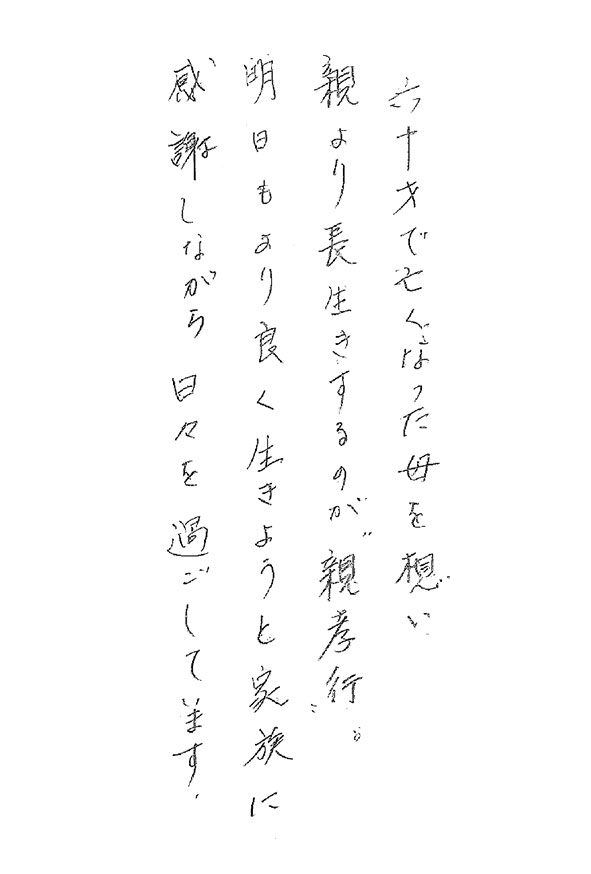 六十才で亡くなった母を想い
親より長生きするのが〝親孝行〟。
明日もより良く生きようと家族に
感謝しながら日々を過ごしてます.